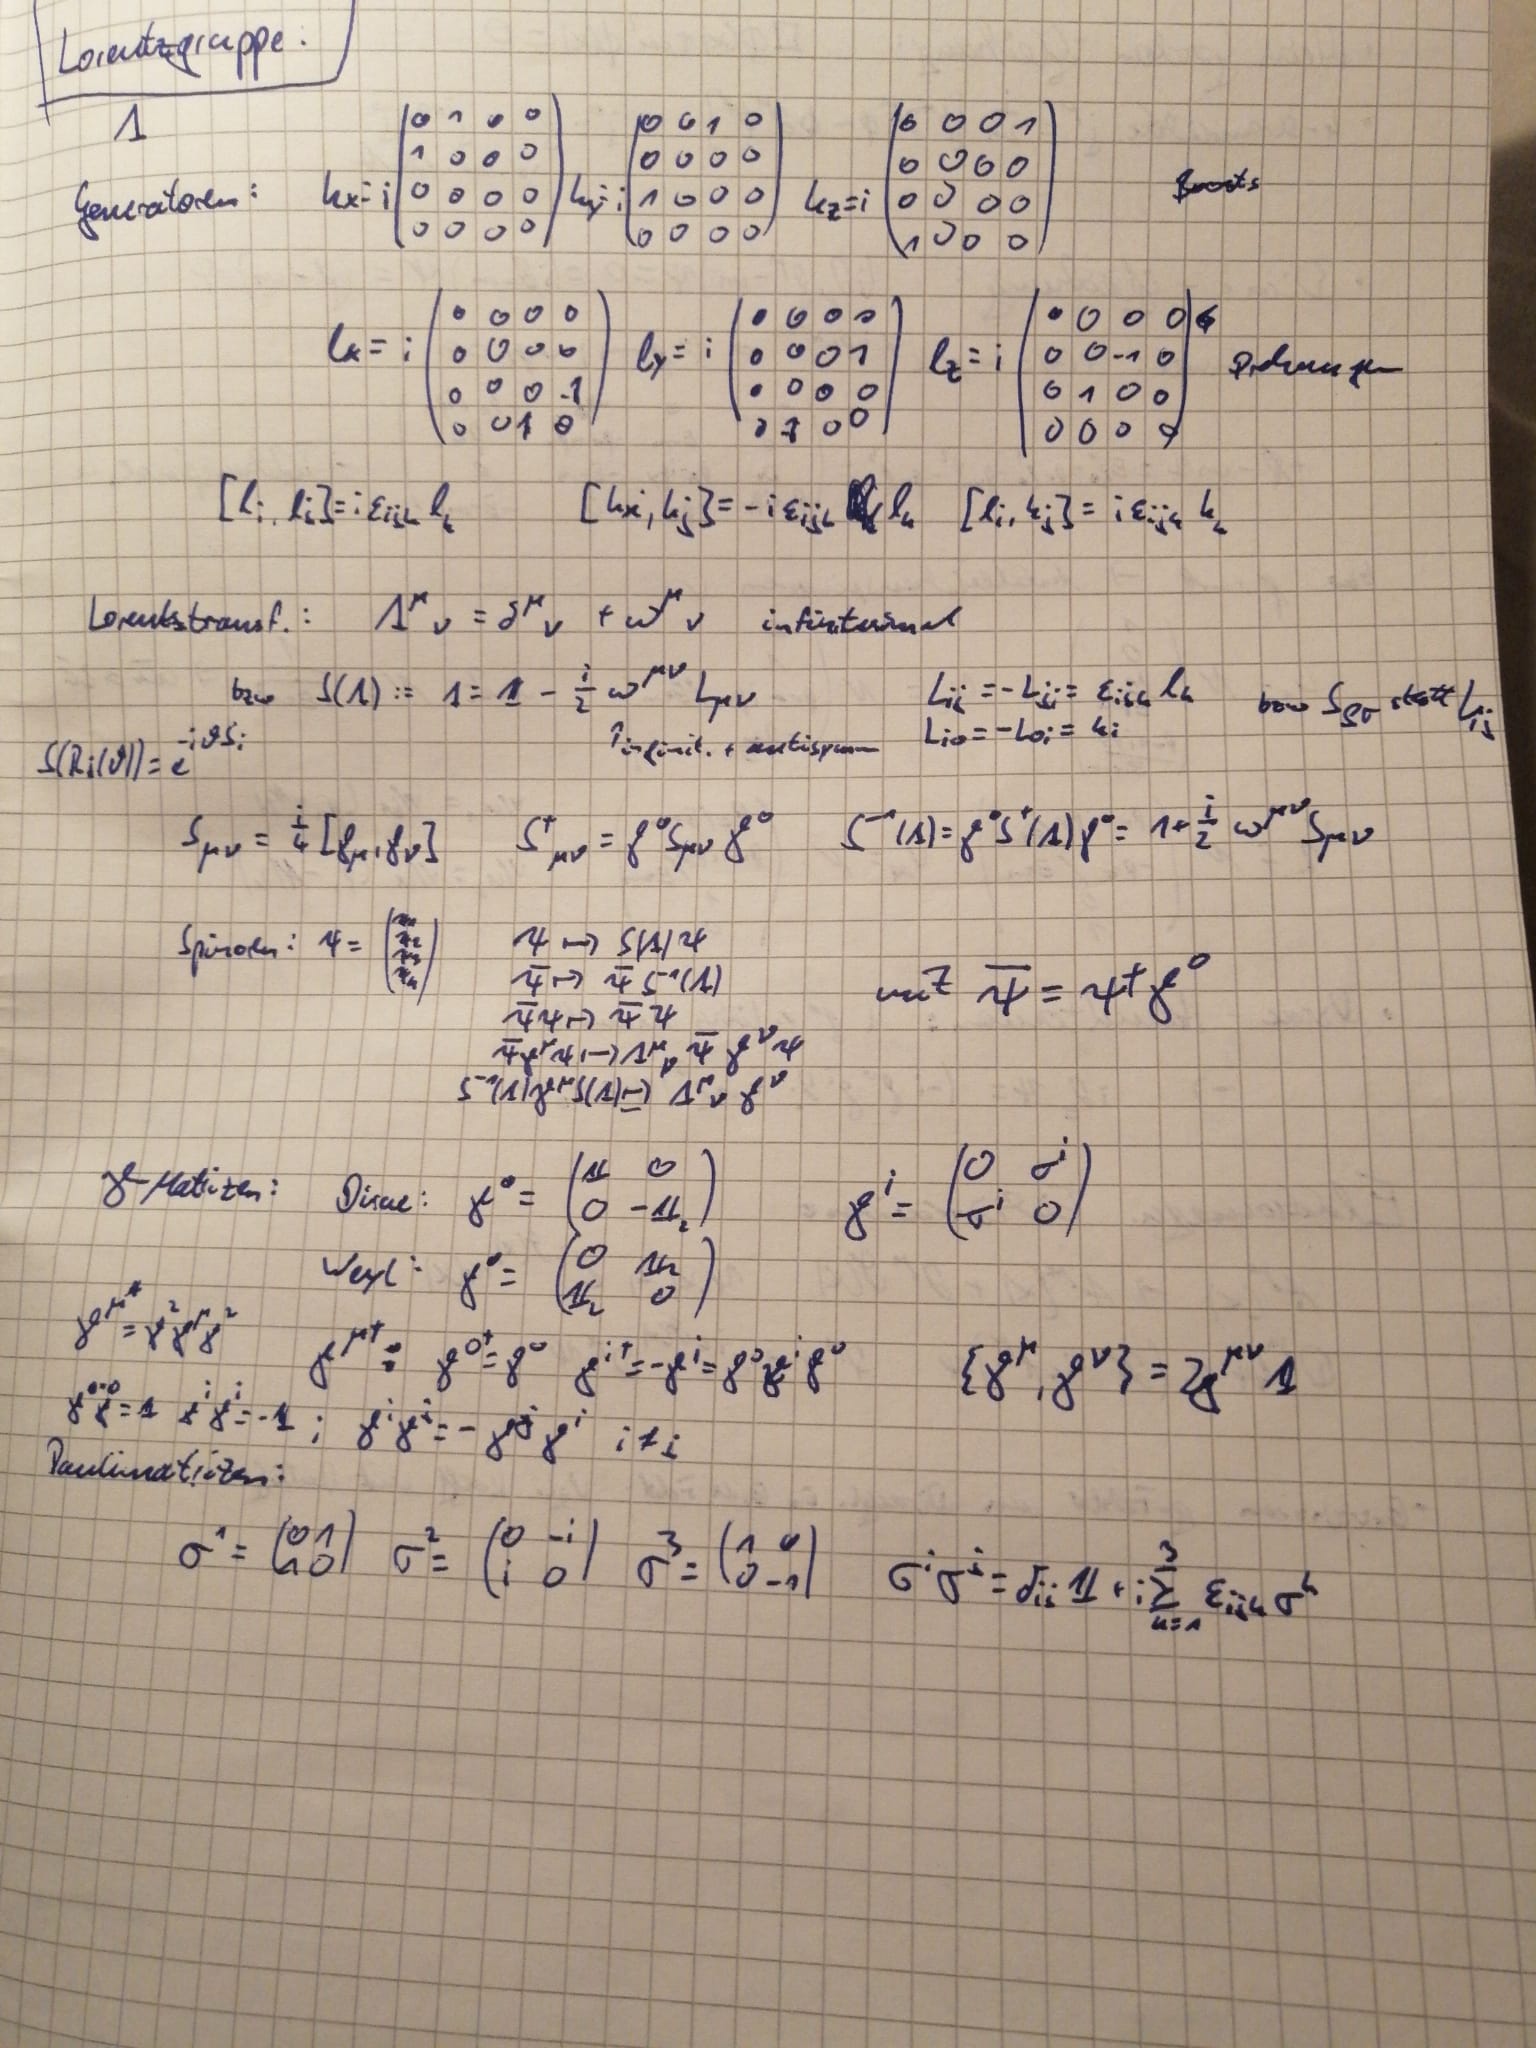 Lorentzgruppe:
Λ
Generatoren: kx = i (0 1 0 0 / 1 0 0 0 / 0 0 0 0 / 0 0 0 0) ky = i (0 0 1 0 / 0 0 0 0 / 1 0 0 0 / 0 0 0 0) kz = i (0 0 0 1 / 0 0 0 0 / 0 0 0 0 / 1 0 0 0) Boosts
lx = i (0 0 0 0 / 0 0 0 0 / 0 0 0 -1 / 0 0 1 0) ly = i (0 0 0 0 / 0 0 0 1 / 0 0 0 0 / 0 -1 0 0) lz = i (0 0 0 0 / 0 0 -1 0 / 0 1 0 0 / 0 0 0 0) Drehungen
[li, lj] = i εijk lk [ki, kj] = -i εijk lk [li, kj] = i εijk kk
Lorentztransf.: Λ^μ_ν = δ^μ_ν + ω^μ_ν infinitesimal
bzw S(Λ) := Λ = 𝟙 - i/2 ω^μν Lμν Lij = -Lji = εijk lk bzw Sρσ statt Lij
↑ infinit. + antisymm Li0 = -L0i = ki
S(Ri(ϑ)) = e^-iϑSi
Sμν = i/4 [γμ, γν] S†μν = γ⁰ Sμν γ⁰ S⁻¹(Λ) = γ⁰S†(Λ)γ⁰ = 1 + i/2 ω^μν Sμν
Spinoren: ψ = (ψ1 / ψ2 / ψ3 / ψ4) ψ ↦ S(Λ)ψ
ψ̄ ↦ ψ̄ S⁻¹(Λ) mit ψ̄ = ψ†γ⁰
ψ̄ψ ↦ ψ̄ψ
ψ̄γ^μψ ↦ Λ^μ_ν ψ̄ γ^ν ψ
S⁻¹(Λ)γ^μ S(Λ) = Λ^μ_ν γ^ν
γ-Matrizen: Dirac: γ⁰ = (𝟙 0 / 0 -𝟙₂) γ^i = (0 σ^i / -σ^i 0)
Weyl: γ⁰ = (0 𝟙₂ / 𝟙₂ 0)
γ^μ* = γ²γ^μγ² γ^μ†: γ⁰† = γ⁰ γ^i† = -γ^i = γ⁰γ^iγ⁰ {γ^μ, γ^ν} = 2g^μν 𝟙
γ⁰γ⁰ = 1 γ^iγ^i = -1 ; γ^iγ^j = -γ^jγ^i i ≠ j
Paulimatrizen:
σ¹ = (0 1 / 1 0) σ² = (0 -i / i 0) σ³ = (1 0 / 0 -1) σ^iσ^j = δij 𝟙 + i Σ_{k=1}^{3} εijk σ^k